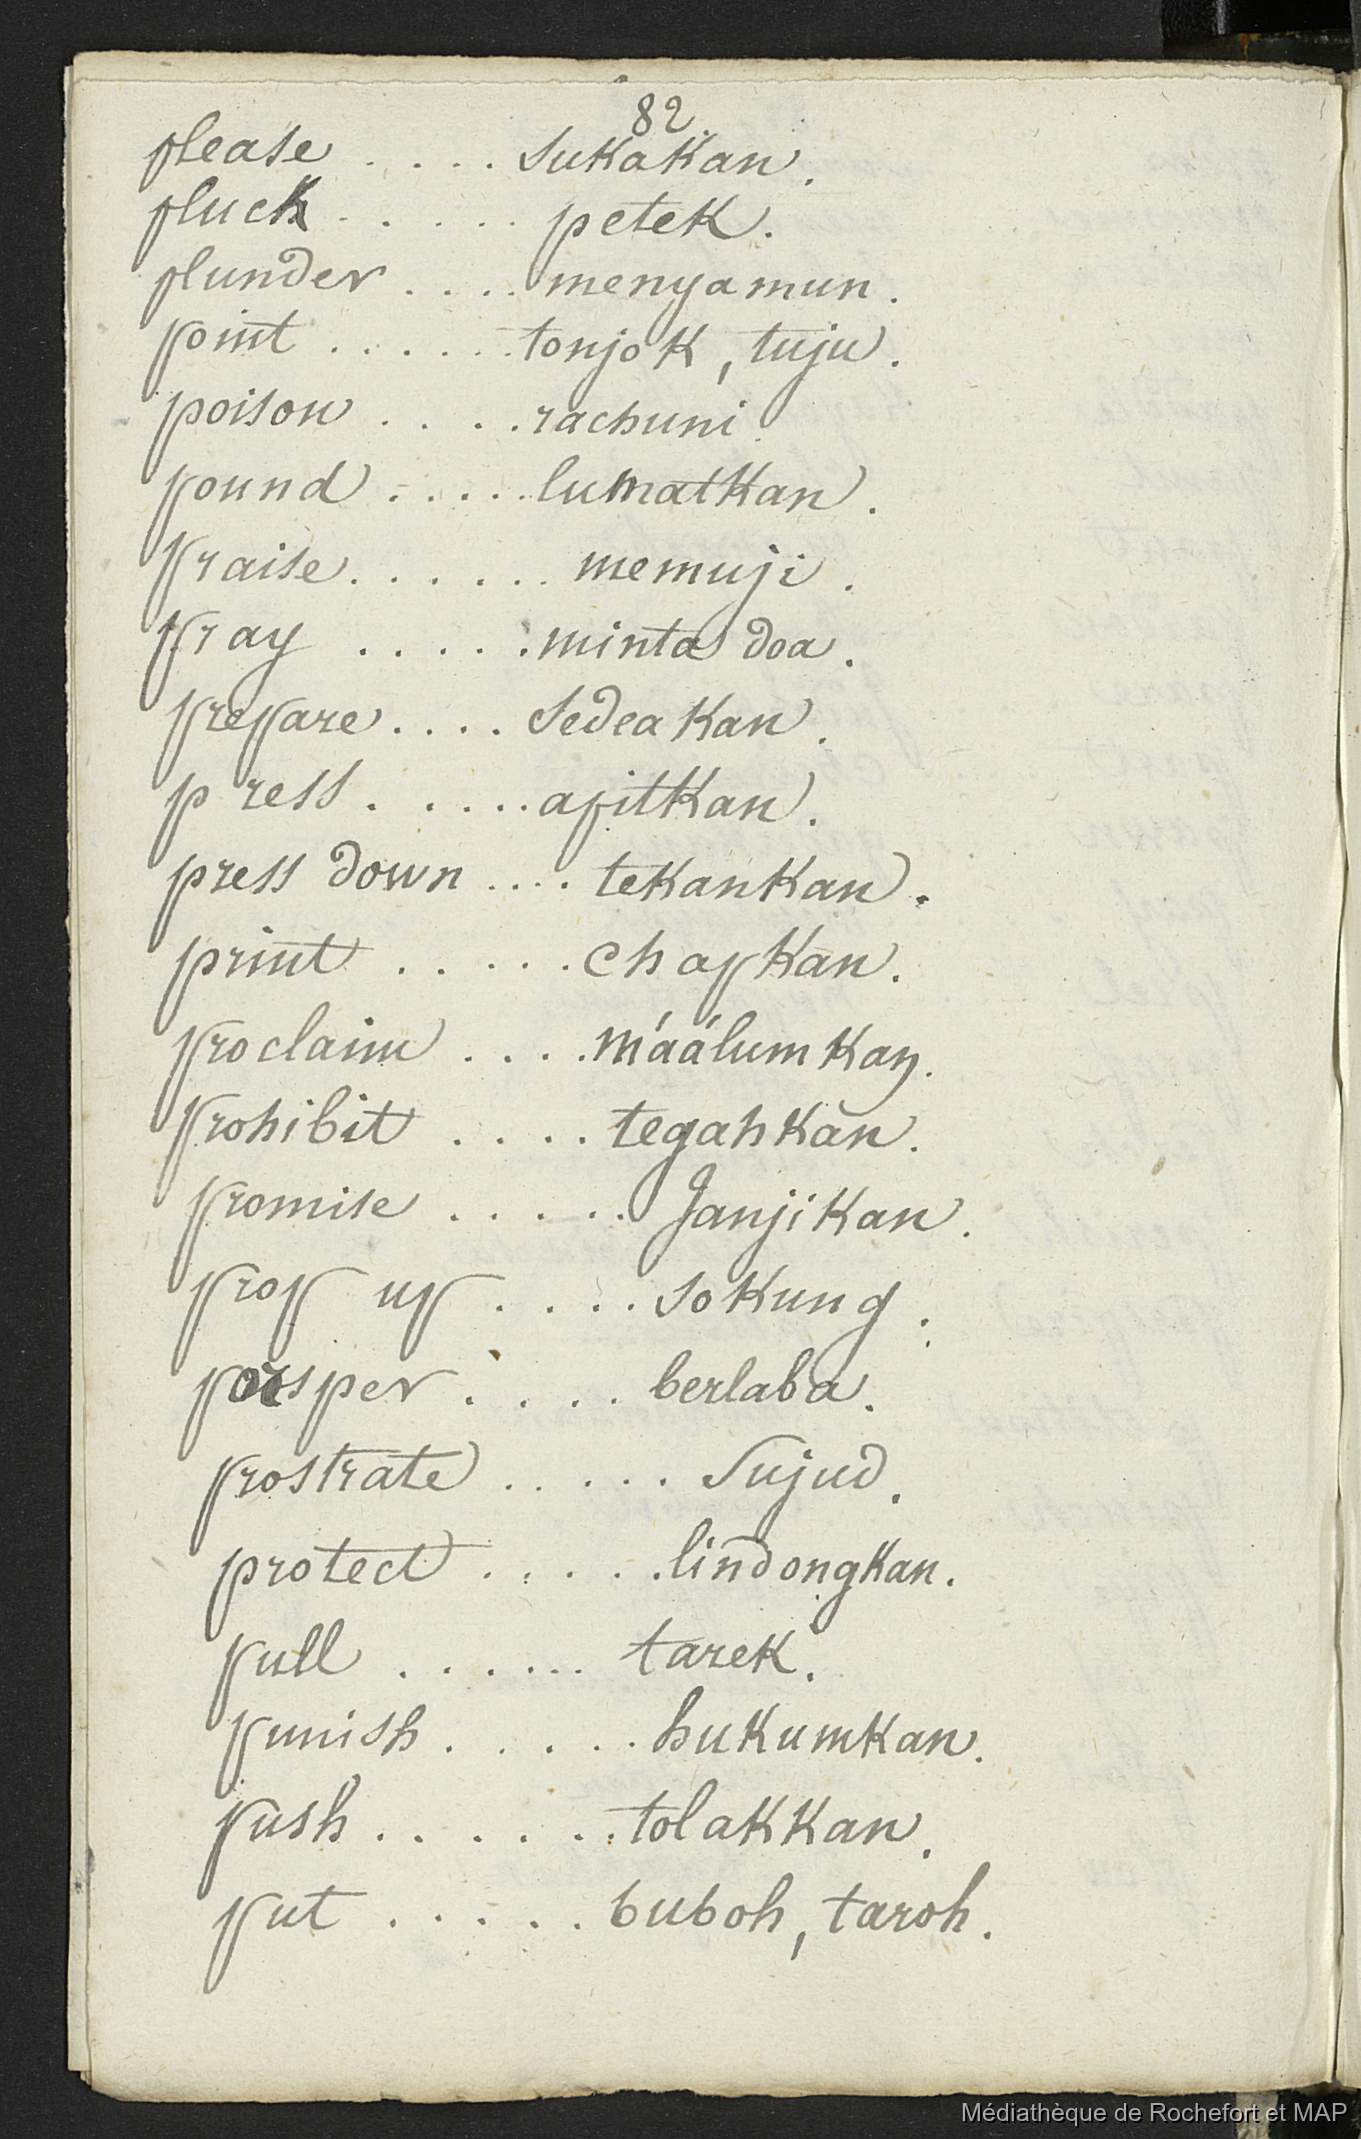 82
please ..... sukakan.
pluck ..... petek.
plunder .... menyamun.
point ...... tonjok, tuju.
poison .... rachuni.
pound ..... lumatkan.
praise ...... memuji.
pray ..... minta doa.
prepare .... sedeakan.
press ..... apitkan.
press down .... tekankan.
print ..... chapkan.
proclaim .... máálumkan.
prohibit .... tegahkan.
promise ..... Janjikan.
prop up .... sokung.
porsper .... berlaba.
prostrate ..... sujud.
protect ..... lindongkan.
pull ...... tarek.
punish ..... hukumkan.
push ...... tolakkan.
put ..... buboh, taroh.
Médiathèque de Rochefort et MAP